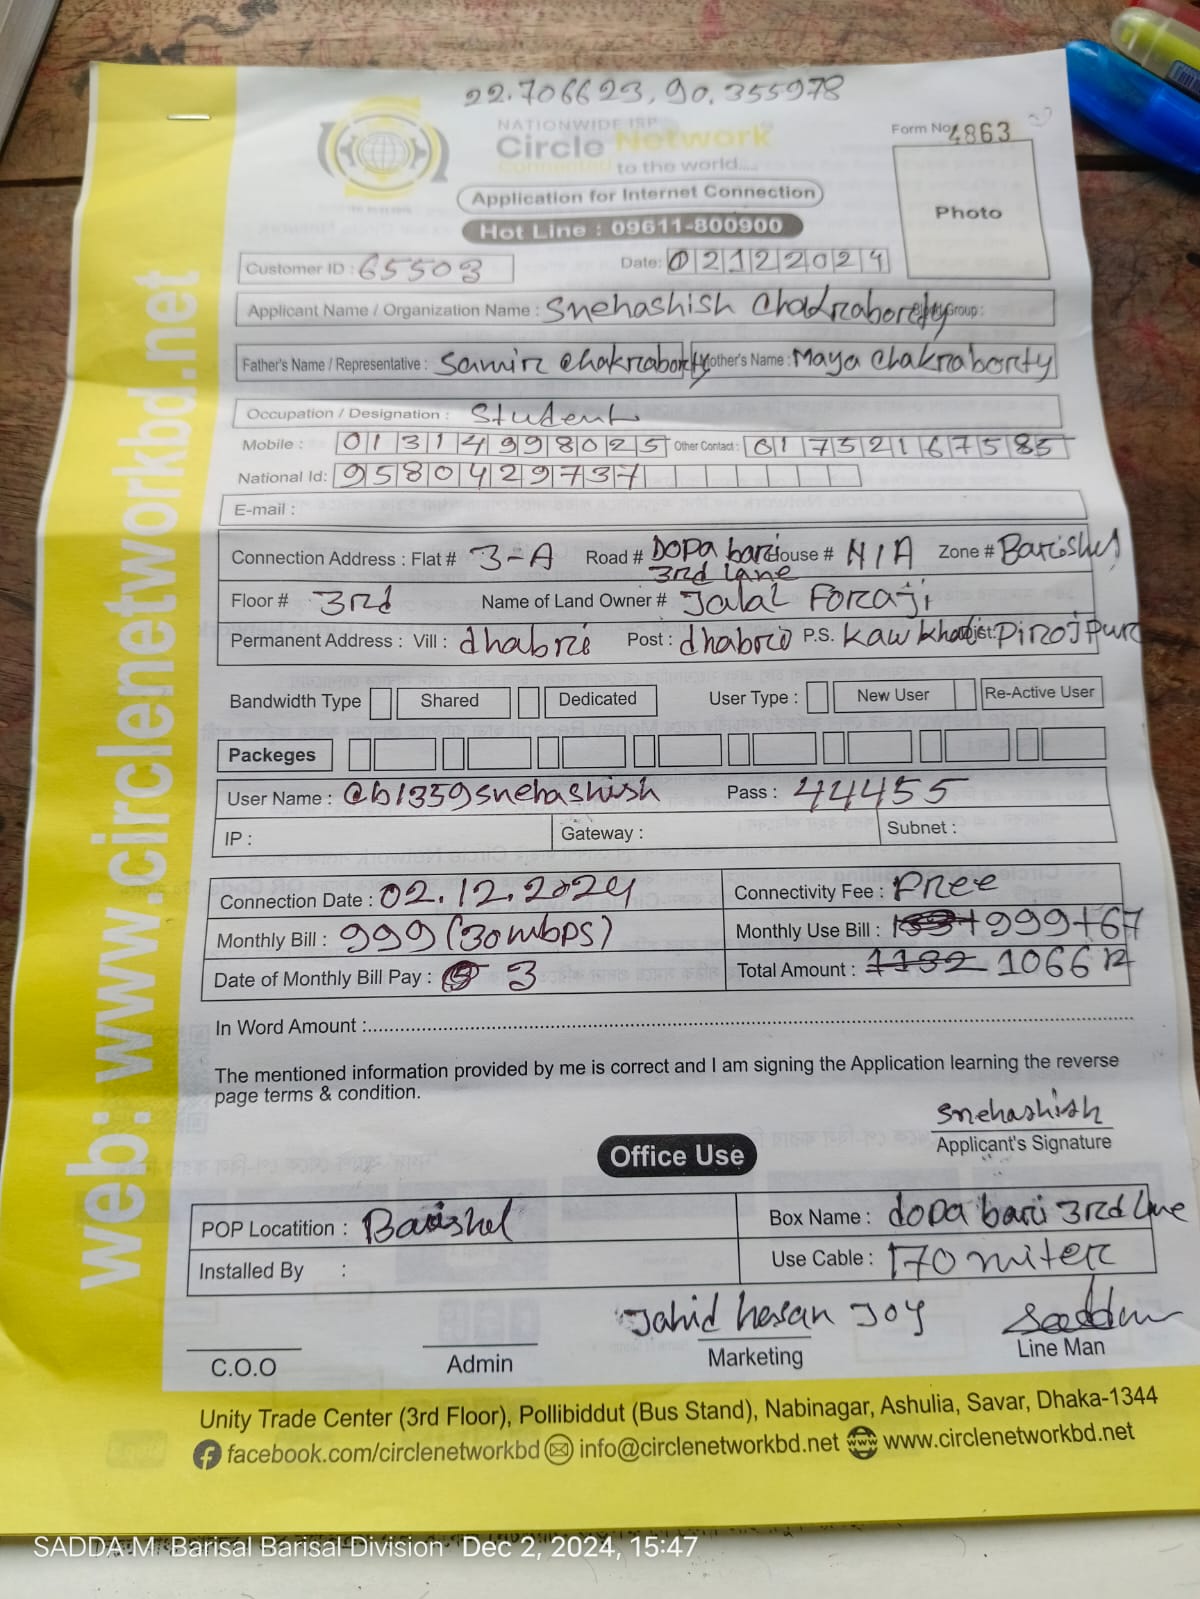 22.706623, 90.355978
NATIONWIDE ISP
Circle Network
Connected to the world....
Form No 4863
Photo
Application for Internet Connection
Hot Line : 09611-800900
Customer ID : 65503 Date: 02122024
Applicant Name / Organization Name : Snehashish Chakraborty Group :
Father's Name / Representative : Samir Chakraborty Mother's Name : Maya Chakraborty
Occupation / Designation : Student
Mobile : 01314998025 Other Contact : 01752167585
National Id: 9580429737
E-mail :
Connection Address : Flat # 3-A Road # Dopa bari 3rd lane House # N/A Zone # Barishal
Floor # 3rd Name of Land Owner # Jalal Foraji
Permanent Address : Vill : dhabri Post : dhabri P.S. Kawkhali Dist: Pirojpur
Bandwidth Type Shared Dedicated User Type : New User Re-Active User
Packeges
User Name : @b1359snehashish Pass : 44455
IP : Gateway : Subnet :
Connection Date : 02.12.2024 Connectivity Fee : Free
Monthly Bill : 999 (30mbps) Monthly Use Bill : 999+67
Date of Monthly Bill Pay : 3 Total Amount : 1132 1066
In Word Amount :
The mentioned information provided by me is correct and I am signing the Application learning the reverse
page terms & condition.
Snehashish
Applicant's Signature
Office Use
POP Locatition : Barishal Box Name : dopa bari 3rd lane
Installed By : Use Cable : 170 miter
Jahid hasan Joy Saddam
C.O.O Admin Marketing Line Man
Unity Trade Center (3rd Floor), Pollibiddut (Bus Stand), Nabinagar, Ashulia, Savar, Dhaka-1344
facebook.com/circlenetworkbd info@circlenetworkbd.net www.circlenetworkbd.net
web: www.circlenetworkbd.net
SADDA.M. Barisal Barisal Division Dec 2, 2024, 15:47